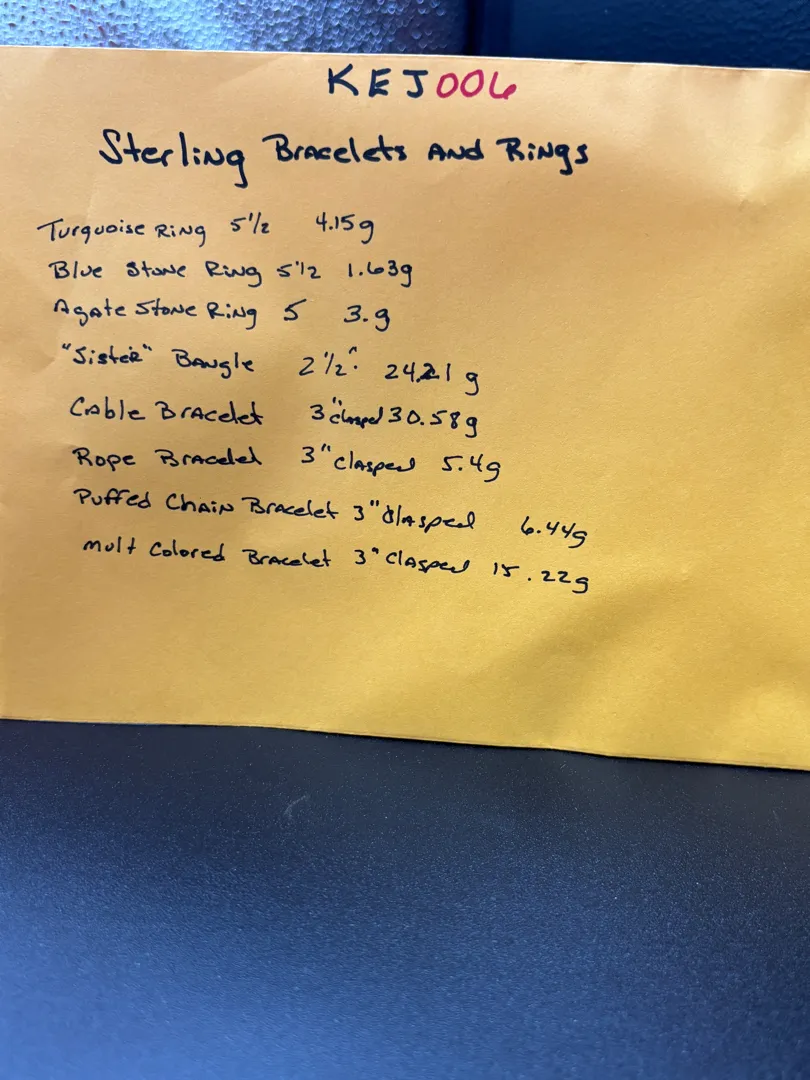 KEJ006
Sterling Bracelets and Rings
Turquoise Ring 5 1/2 4.15g
Blue Stone Ring 5 1/2 1.63g
Agate Stone Ring 5 3.g
"Sister" Bangle 2 1/2" 24.21 g
Cable Bracelet 3" clasped 30.58g
Rope Bracelet 3" clasped 5.4g
Puffed Chain Bracelet 3" clasped 6.44g
Mult Colored Bracelet 3" clasped 15.22g